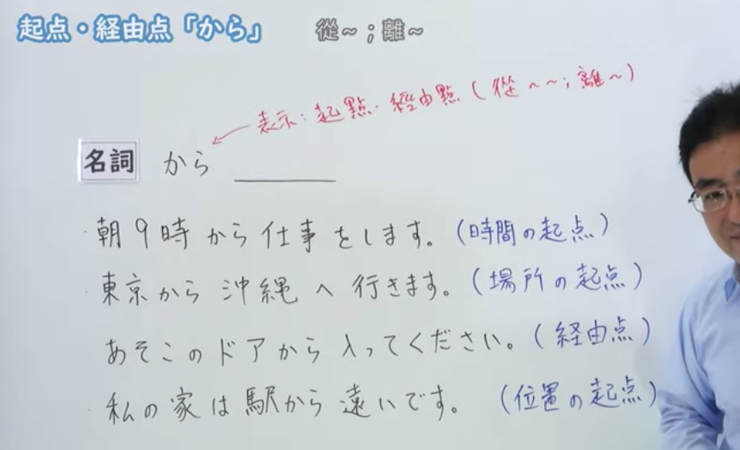 起点・経由点「から」 從~；離~
表示：起點・經由點（從~~；離~）
名詞 から
朝9時から仕事をします。（時間の起点）
東京から沖縄へ行きます。（場所の起点）
あそこのドアから入ってください。（経由点）
私の家は駅から遠いです。（位置の起点）